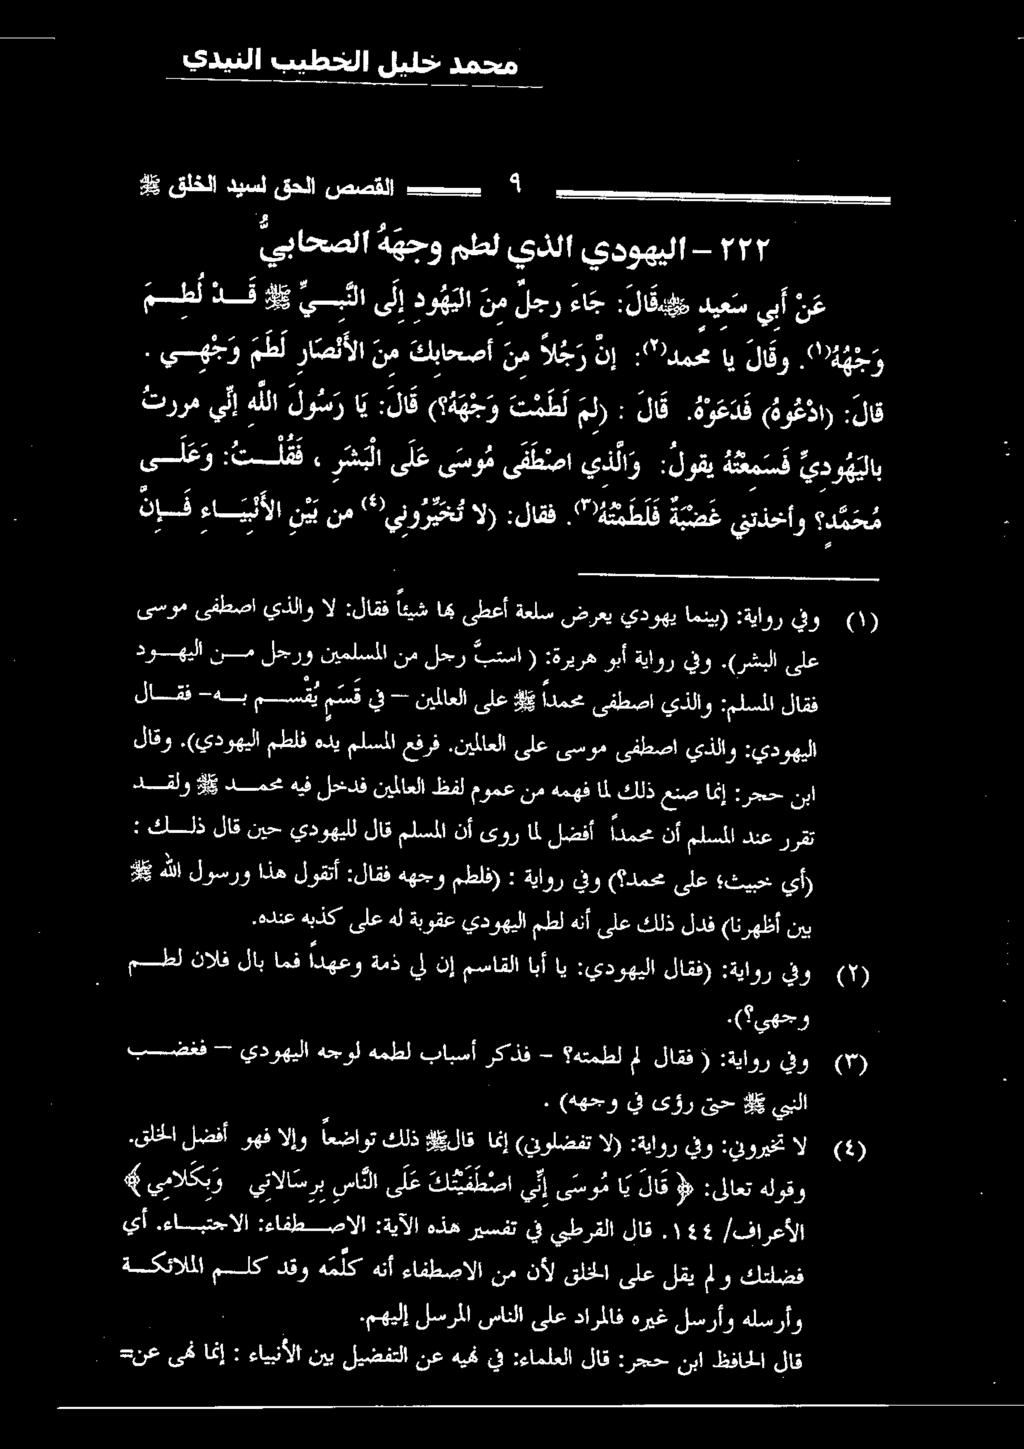 محمد خليل الخطيب النيدي
القصص الحق لسيد الخلق ﷺ ٩
٢٢٢ - اليهودي الذي لطم وجهَهُ الصحابيُّ
عَنْ أَبي سَعِيدٍ ﷺ قَالَ: جَاءَ رجلٌ مِنَ اليَهُودِ إِلَى النَّبِيِّ ﷺ قَدْ لُطِمَ
وَجْهُهُ(١). وقَالَ يا محمد(٢): إن رَجُلاً مِنَ أصحابِكَ مِنَ الأَنْصَارِ لَطَمَ وَجْهِي.
قالَ: (ادْعُوهُ) فَدَعَوْهُ. قالَ: (لِمَ لَطَمْتَ وَجْهَهُ؟) قَالَ: يَا رَسُولَ اللهِ إِنِّي مررتُ
بِاليَهُودِيِّ فَسَمِعْتُهُ يقولُ: وَالَّذِي اصْطَفَى مُوسَى عَلَى الْبَشَرِ، فَقُلْتُ: وَعَلَى
مُحَمَّدٍ؟ وأخذتني غَضْبَةٌ فَلَطَمْتُهُ(٣). فقال: (لا تُخَيِّرُوني(٤) من بَيْنِ الأَنْبِيَاءِ فَإِنَّ
(١) وفي رواية: (بينما يهودي يعرض سلعة أعطى بها شيئاً فقال: لا والذي اصطفى موسى
على البشر). وفي رواية أبو هريرة: ( استبَّ رجل من المسلمين ورجل من اليهود
فقال المسلم: والذي اصطفى محمداً ﷺ على العالمين – في قَسَمٍ يُقْسِم به- فقال
اليهودي: والذي اصطفى موسى على العالمين. فرفع المسلم يده فلطم اليهودي). وقال
ابن حجر: إنما صنع ذلك لما فهمه من عموم لفظ العالمين فدخل فيه محمد ﷺ ولقد
تقرر عند المسلم أن محمداً أفضل لما روى أن المسلم قال لليهودي حين قال ذلك :
(أي خبيث؛ على محمد؟) وفي رواية : (فلطم وجهه فقال: أتقول هذا ورسول الله ﷺ
بين أظهرنا) فدل ذلك على أنه لطم اليهودي عقوبة له على كذبه عنده.
(٢) وفي رواية: (فقال اليهودي: يا أبا القاسم إن لي ذمة وعهداً فما بال فلان لطم
وجهي؟).
(٣) وفي رواية: ( فقال لم لطمته؟ - فذكر أسباب لطمه لوجه اليهودي – فغضب
النبي ﷺ حتى رؤى في وجهه) .
(٤) لا تخيروني: وفي رواية: (لا تفضلوني) إنما قال ﷺ ذلك تواضعاً وإلا فهو أفضل الخلق.
وقوله تعالى: ﴿ قَالَ يَا مُوسَى إِنِّي اصْطَفَيْتُكَ عَلَى النَّاسِ بِرِسَالاتِي وَبِكَلامِي ﴾
الأعراف/ ١٤٤. قال القرطبي في تفسير هذه الآية: الاصطفاء: الاجتباء. أي
فضلتك و لم يقل على الخلق لأن من الاصطفاء أنه كلَّمَه وقد كلم الملائكة
وأرسله وأرسل غيره فالمراد على الناس المرسل إليهم.
قال الحافظ ابن حجر: قال العلماء: في نهيه عن التفضيل بين الأنبياء : إنما نهى عن=